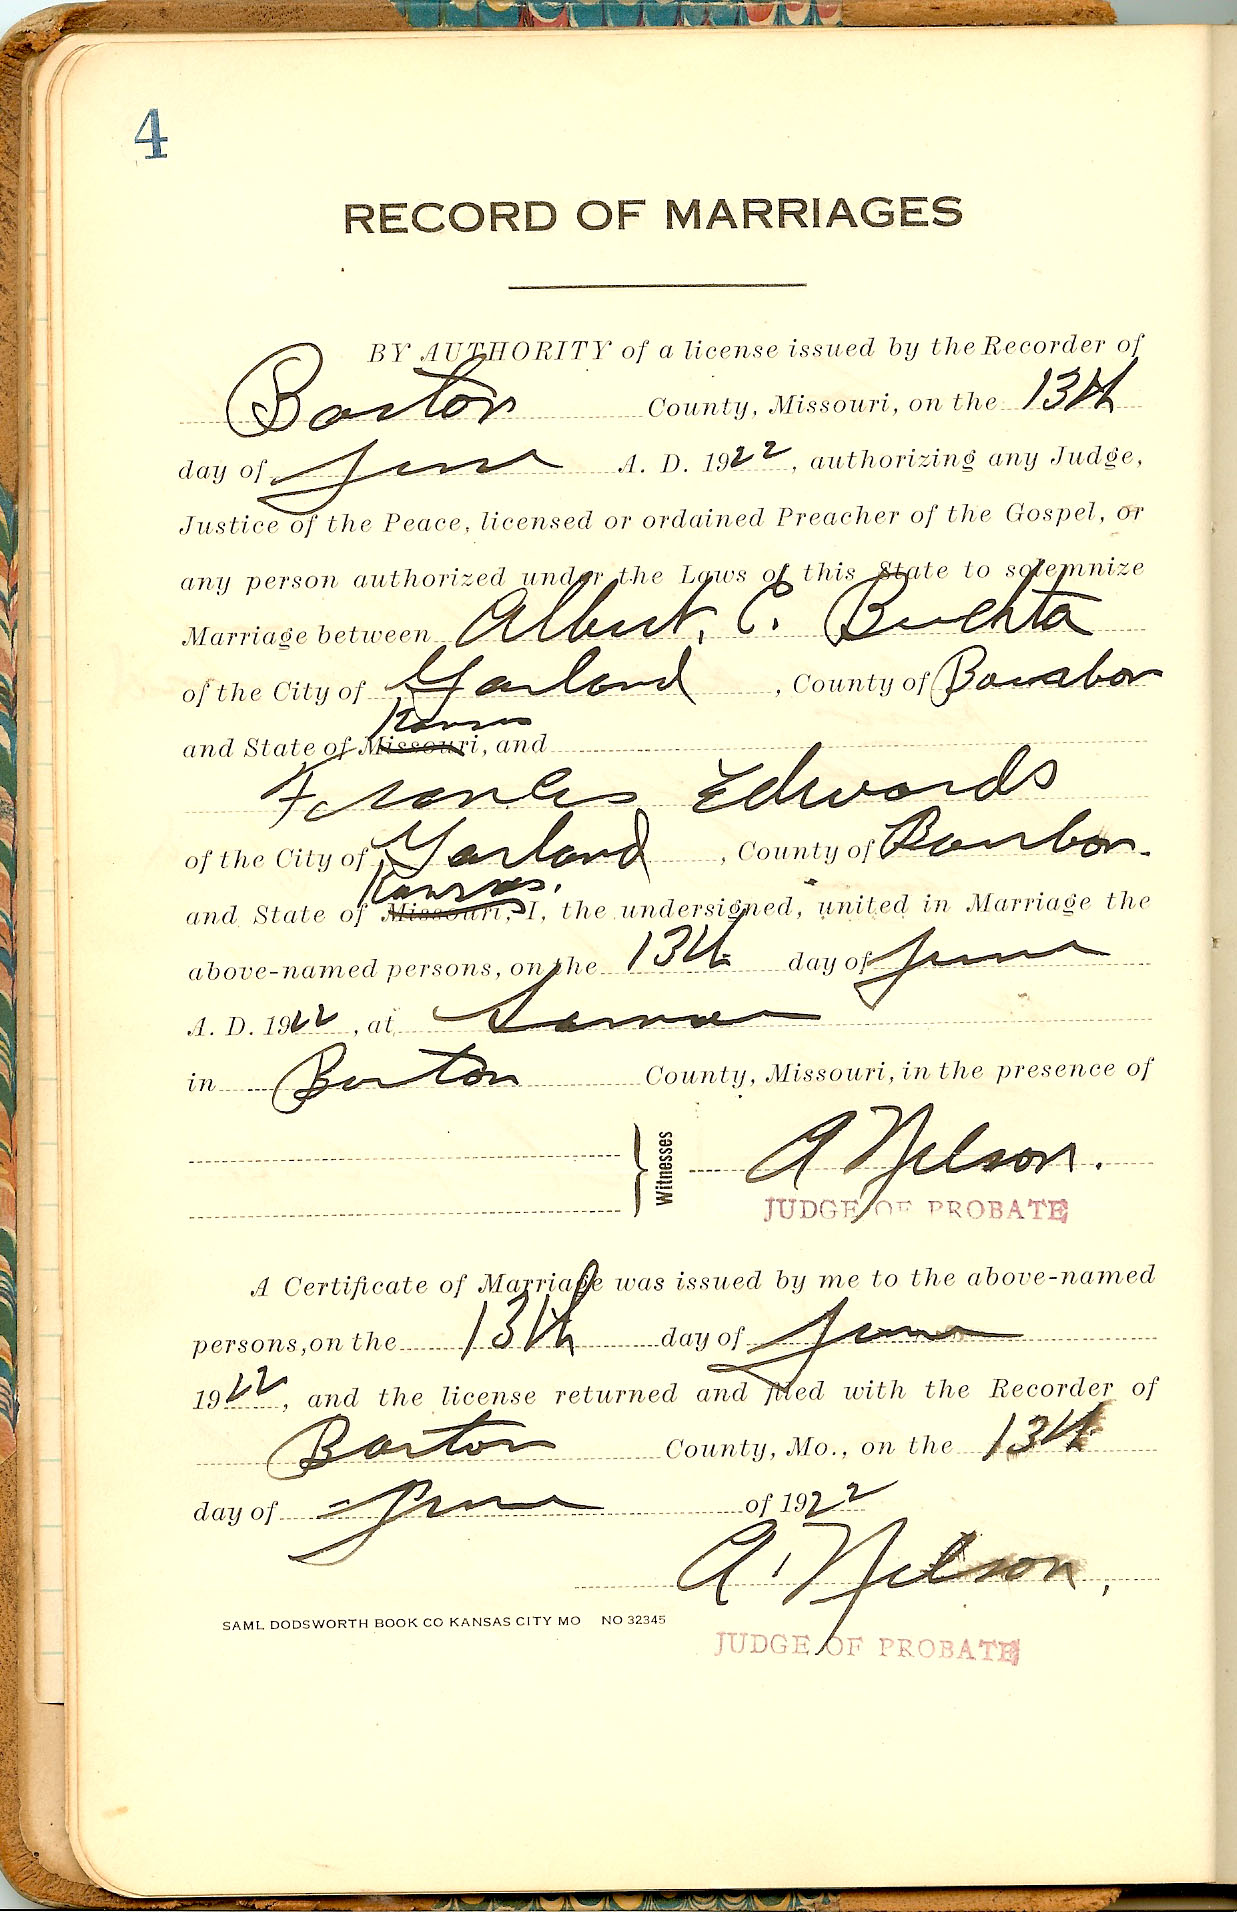 4
RECORD OF MARRIAGES
BY AUTHORITY of a license issued by the Recorder of
Barton County, Missouri, on the 13th
day of June A. D. 1922, authorizing any Judge,
Justice of the Peace, licensed or ordained Preacher of the Gospel, or
any person authorized under the Laws of this State to solemnize
Marriage between Albert. C. Buchta
of the City of Garland, County of Bourbon
Kansas
and State of Missouri, and
Frances Edwards
of the City of Garland, County of Bourbon.
Kansas.
and State of Missouri, I, the undersigned, united in Marriage the
above-named persons, on the 13th day of June
A. D. 1922, at Lamar
in Barton County, Missouri, in the presence of
Witnesses
A Nelson.
JUDGE OF PROBATE
A Certificate of Marriage was issued by me to the above-named
persons, on the 13th day of June
1922, and the license returned and filed with the Recorder of
Barton County, Mo., on the 13th
day of June of 1922
A. Nelson,
SAML DODSWORTH BOOK CO KANSAS CITY MO NO 32345
JUDGE OF PROBATE